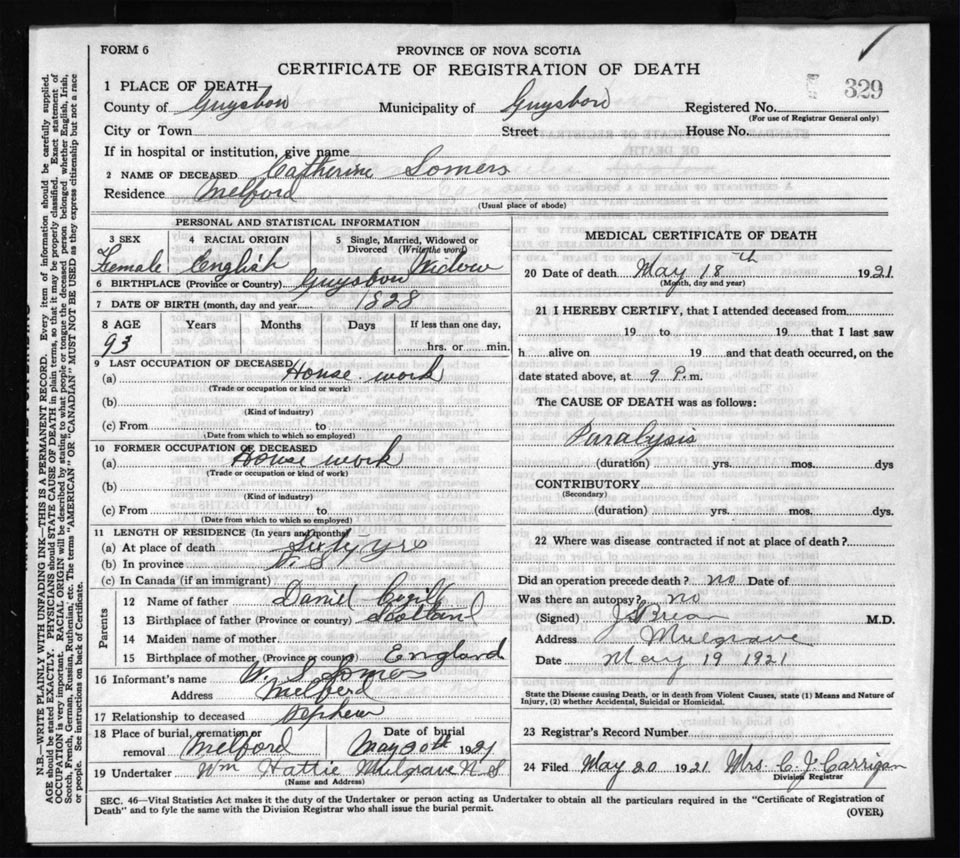 FORM 6
PROVINCE OF NOVA SCOTIA
CERTIFICATE OF REGISTRATION OF DEATH
329
1 PLACE OF DEATH
County of Guysboro Municipality of Guysboro Registered No.
(For use of Registrar General only)
City or Town Street House No.
If in hospital or institution, give name
2 NAME OF DECEASED Catherine Somers
Residence Melford
(Usual place of abode)
PERSONAL AND STATISTICAL INFORMATION
3 SEX 4 RACIAL ORIGIN 5 Single, Married, Widowed or Divorced (Write the word)
Female English Widow
6 BIRTHPLACE (Province or Country) Guysboro
7 DATE OF BIRTH (month, day and year) 1828
8 AGE Years Months Days If less than one day,
93 hrs. or min.
9 LAST OCCUPATION OF DECEASED
(a) House work
(Trade or occupation or kind of work)
(b)
(Kind of industry)
(c) From to
(Date from which to which so employed)
10 FORMER OCCUPATION OF DECEASED
(a) House work
(Trade or occupation or kind of work)
(b)
(Kind of industry)
(c) From to
(Date from which to which so employed)
11 LENGTH OF RESIDENCE (In years and months)
(a) At place of death yrs
(b) In province
(c) In Canada (if an immigrant)
Parents
12 Name of father Daniel
13 Birthplace of father (Province or country) Scotland
14 Maiden name of mother
15 Birthplace of mother (Province or country) England
16 Informant's name W. S. Somers
Address Melford
17 Relationship to deceased Nephew
18 Place of burial, cremation or removal Melford Date of burial May 20th 1921
19 Undertaker Wm Hattie Mulgrave N S
(Name and Address)
MEDICAL CERTIFICATE OF DEATH
20 Date of death May 18th 1921
(Month, day and year)
21 I HEREBY CERTIFY, that I attended deceased from
19 to 19 that I last saw
h alive on 19 and that death occurred, on the
date stated above, at 9 P.m.
The CAUSE OF DEATH was as follows:
Paralysis
(duration) yrs. mos. dys
CONTRIBUTORY
(Secondary)
(duration) yrs. mos. dys.
22 Where was disease contracted if not at place of death?
Did an operation precede death? no Date of
Was there an autopsy? no
(Signed) M.D.
Address Mulgrave
Date May 19 1921
State the Disease causing Death, or in death from Violent Causes, state (1) Means and Nature of
Injury, (2) whether Accidental, Suicidal or Homicidal.
23 Registrar's Record Number
24 Filed May 20 1921 Mrs. C. J. Carrigan
Division Registrar
SEC. 46—Vital Statistics Act makes it the duty of the Undertaker or person acting as Undertaker to obtain all the particulars required in the "Certificate of Registration of
Death" and to fyle the same with the Division Registrar who shall issue the burial permit.
(OVER)
N.B.—WRITE PLAINLY WITH UNFADING INK—THIS IS A PERMANENT RECORD. Every item of information should be carefully supplied.
AGE should be stated EXACTLY. PHYSICIANS should STATE CAUSE OF DEATH in plain terms, so that it may be properly classified. Exact statement of
OCCUPATION is very important. RACIAL ORIGIN will be described by stating to what people or tongue the deceased person belonged whether English, Irish,
Scotch, French, German, Russian, Ruthenian, etc. The terms "AMERICAN" OR "CANADIAN" MUST NOT BE USED as they express citizenship but not a race
or people. See instructions on back of Certificate.